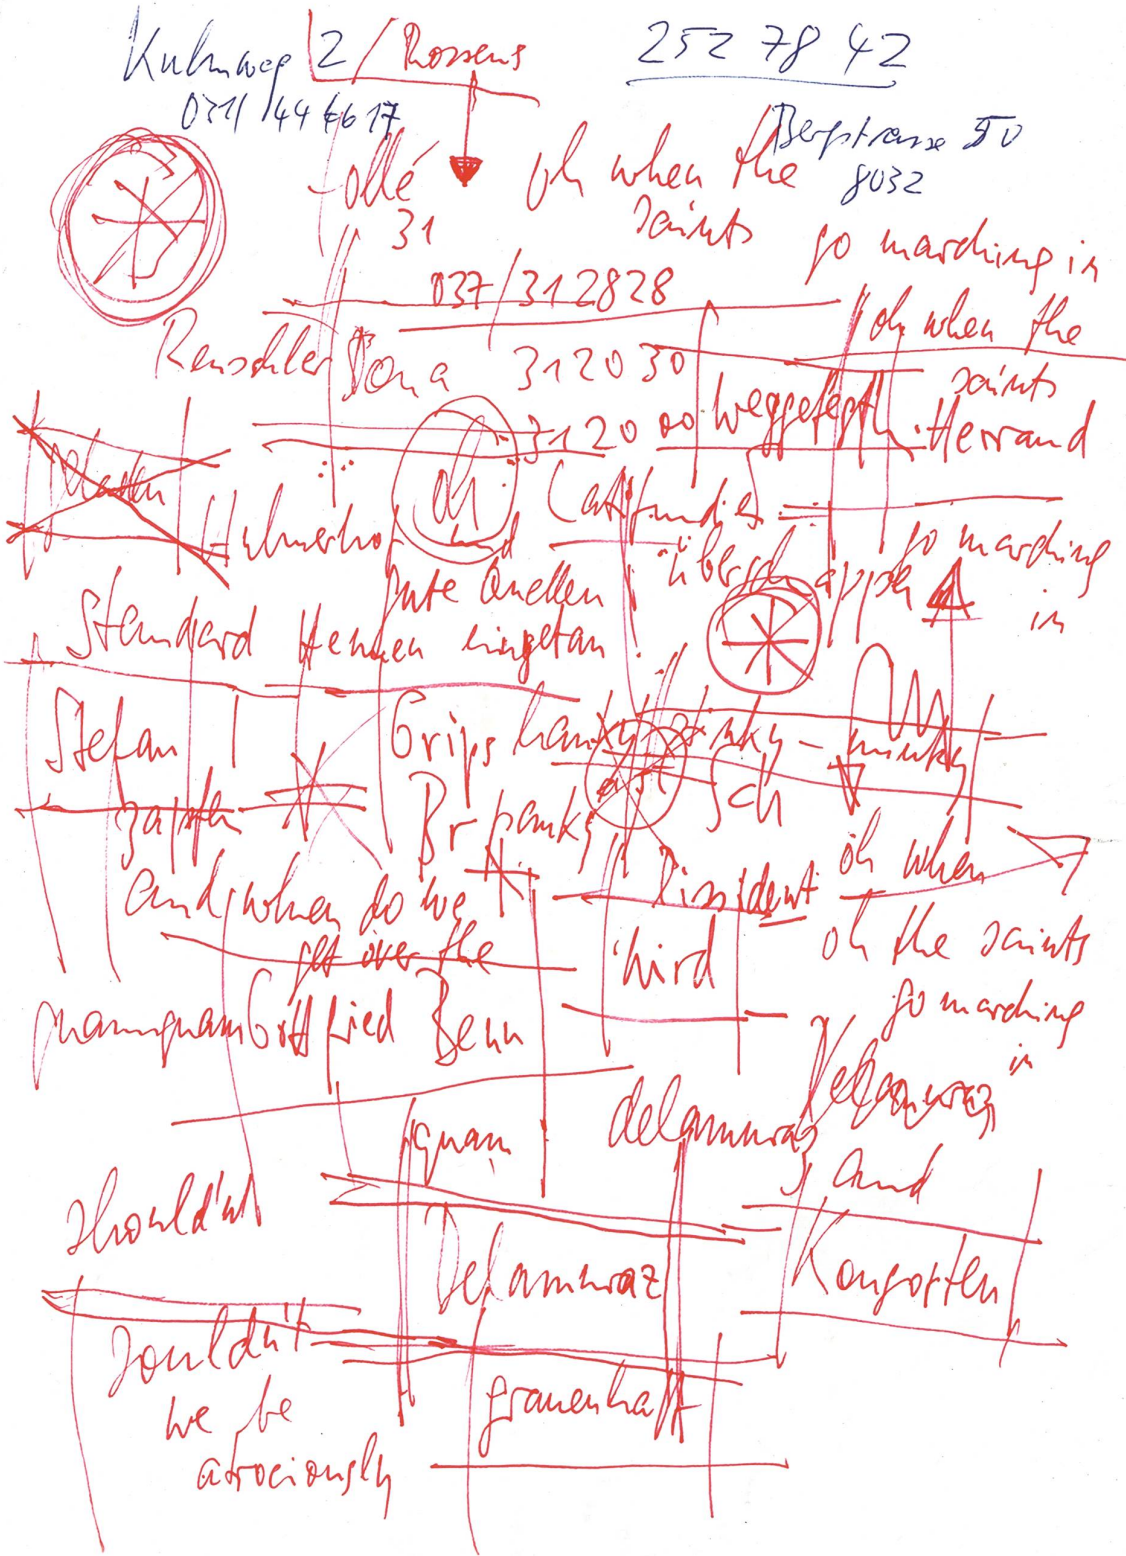 Kuhnweg 2 / Rossens
252 78 42
031/ 44 46 17
Bergstrasse 50
8032
ollé
31
oh when the
saints
go marching in
037/312828
oh when the
saints
Renschler Dona 312030
312000 weggefegt
Herrand
oh
und
go marching
in
gute Quellen
überschappen
Standard Hennen eingetan
Stefan
zapfen
Grips hanky stinky - minky
Br panky
sch
and when do we
get over the
Dissident
oh when
third
oh the saints
go marching
in
quamquam Gottfried Benn
quam
delamuraz
Delamuraz
and
should'nt
Delamuraz
Kongorten
souldn't
we be
atrociously
grauenhaft